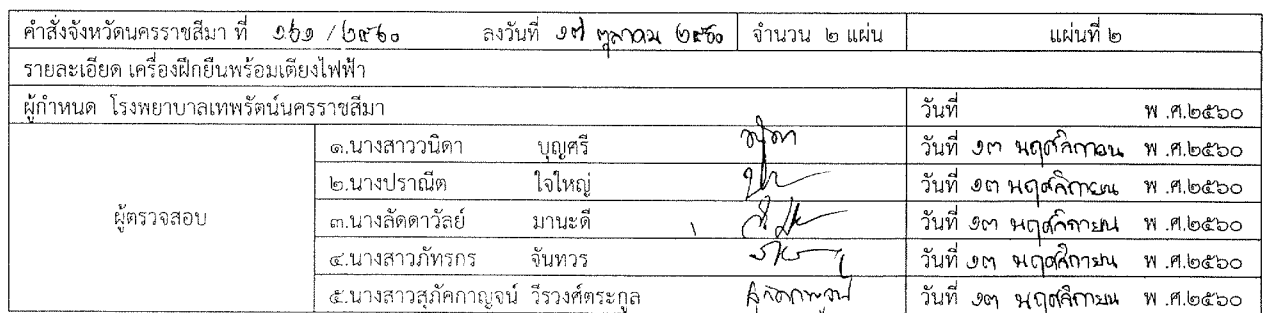 คำสั่งจังหวัดนครราชสีมา ที่ /๒๕๖๐ ลงวันที่ ๑๗ ตุลาคม ๒๕๖๐ จำนวน ๒ แผ่น แผ่นที่ ๒
รายละเอียด เครื่องฝึกยืนพร้อมเตียงไฟฟ้า
ผู้กำหนด โรงพยาบาลเทพรัตน์นครราชสีมา วันที่ พ.ศ.๒๕๖๐
ผู้ตรวจสอบ
๑.นางสาววนิดา บุญศรี วันที่ ๑๓ พฤศจิกายน พ.ศ.๒๕๖๐
๒.นางปราณีต ใจใหญ่ วันที่ ๑๓ พฤศจิกายน พ.ศ.๒๕๖๐
๓.นางลัดดาวัลย์ มานะดี วันที่ ๑๓ พฤศจิกายน พ.ศ.๒๕๖๐
๔.นางสาวภัทรกร จันทวร วันที่ ๑๓ พฤศจิกายน พ.ศ.๒๕๖๐
๕.นางสาวสุภัคกาญจน์ วีรวงศ์ตระกูล วันที่ ๑๓ พฤศจิกายน พ.ศ.๒๕๖๐